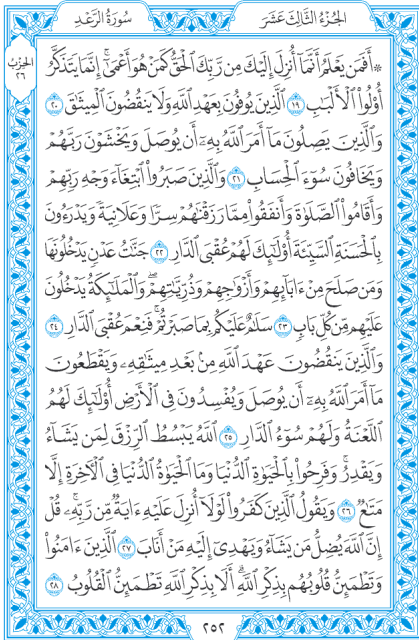 سُورَةُ الرَّعْدِ
الجُزْءُ الثَّالِثَ عَشَرَ
الحِزْبُ
٢٦
۞ أَفَمَن يَعْلَمُ أَنَّمَآ أُنزِلَ إِلَيْكَ مِن رَّبِّكَ ٱلْحَقُّ كَمَنْ هُوَ أَعْمَىٰٓ ۚ إِنَّمَا يَتَذَكَّرُ
أُو۟لُوا۟ ٱلْأَلْبَٰبِ ١٩ ٱلَّذِينَ يُوفُونَ بِعَهْدِ ٱللَّهِ وَلَا يَنقُضُونَ ٱلْمِيثَٰقَ ٢٠
وَٱلَّذِينَ يَصِلُونَ مَآ أَمَرَ ٱللَّهُ بِهِۦٓ أَن يُوصَلَ وَيَخْشَوْنَ رَبَّهُمْ
وَيَخَافُونَ سُوٓءَ ٱلْحِسَابِ ٢١ وَٱلَّذِينَ صَبَرُوا۟ ٱبْتِغَآءَ وَجْهِ رَبِّهِمْ
وَأَقَامُوا۟ ٱلصَّلَوٰةَ وَأَنفَقُوا۟ مِمَّا رَزَقْنَٰهُمْ سِرًّا وَعَلَانِيَةً وَيَدْرَءُونَ
بِٱلْحَسَنَةِ ٱلسَّيِّئَةَ أُو۟لَٰٓئِكَ لَهُمْ عُقْبَى ٱلدَّارِ ٢٢ جَنَّٰتُ عَدْنٍ يَدْخُلُونَهَا
وَمَن صَلَحَ مِنْ ءَابَآئِهِمْ وَأَزْوَٰجِهِمْ وَذُرِّيَّٰتِهِمْ ۖ وَٱلْمَلَٰٓئِكَةُ يَدْخُلُونَ
عَلَيْهِم مِّن كُلِّ بَابٍ ٢٣ سَلَٰمٌ عَلَيْكُم بِمَا صَبَرْتُمْ ۚ فَنِعْمَ عُقْبَى ٱلدَّارِ ٢٤
وَٱلَّذِينَ يَنقُضُونَ عَهْدَ ٱللَّهِ مِنۢ بَعْدِ مِيثَٰقِهِۦ وَيَقْطَعُونَ
مَآ أَمَرَ ٱللَّهُ بِهِۦٓ أَن يُوصَلَ وَيُفْسِدُونَ فِى ٱلْأَرْضِ ۙ أُو۟لَٰٓئِكَ لَهُمُ
ٱللَّعْنَةُ وَلَهُمْ سُوٓءُ ٱلدَّارِ ٢٥ ٱللَّهُ يَبْسُطُ ٱلرِّزْقَ لِمَن يَشَآءُ
وَيَقْدِرُ ۚ وَفَرِحُوا۟ بِٱلْحَيَوٰةِ ٱلدُّنْيَا وَمَا ٱلْحَيَوٰةُ ٱلدُّنْيَا فِى ٱلْأَخِرَةِ إِلَّا
مَتَٰعٌ ٢٦ وَيَقُولُ ٱلَّذِينَ كَفَرُوا۟ لَوْلَآ أُنزِلَ عَلَيْهِ ءَايَةٌ مِّن رَّبِّهِۦ ۗ قُلْ
إِنَّ ٱللَّهَ يُضِلُّ مَن يَشَآءُ وَيَهْدِىٓ إِلَيْهِ مَنْ أَنَابَ ٢٧ ٱلَّذِينَ ءَامَنُوا۟
وَتَطْمَئِنُّ قُلُوبُهُم بِذِكْرِ ٱللَّهِ ۗ أَلَا بِذِكْرِ ٱللَّهِ تَطْمَئِنُّ ٱلْقُلُوبُ ٢٨
٢٥٢